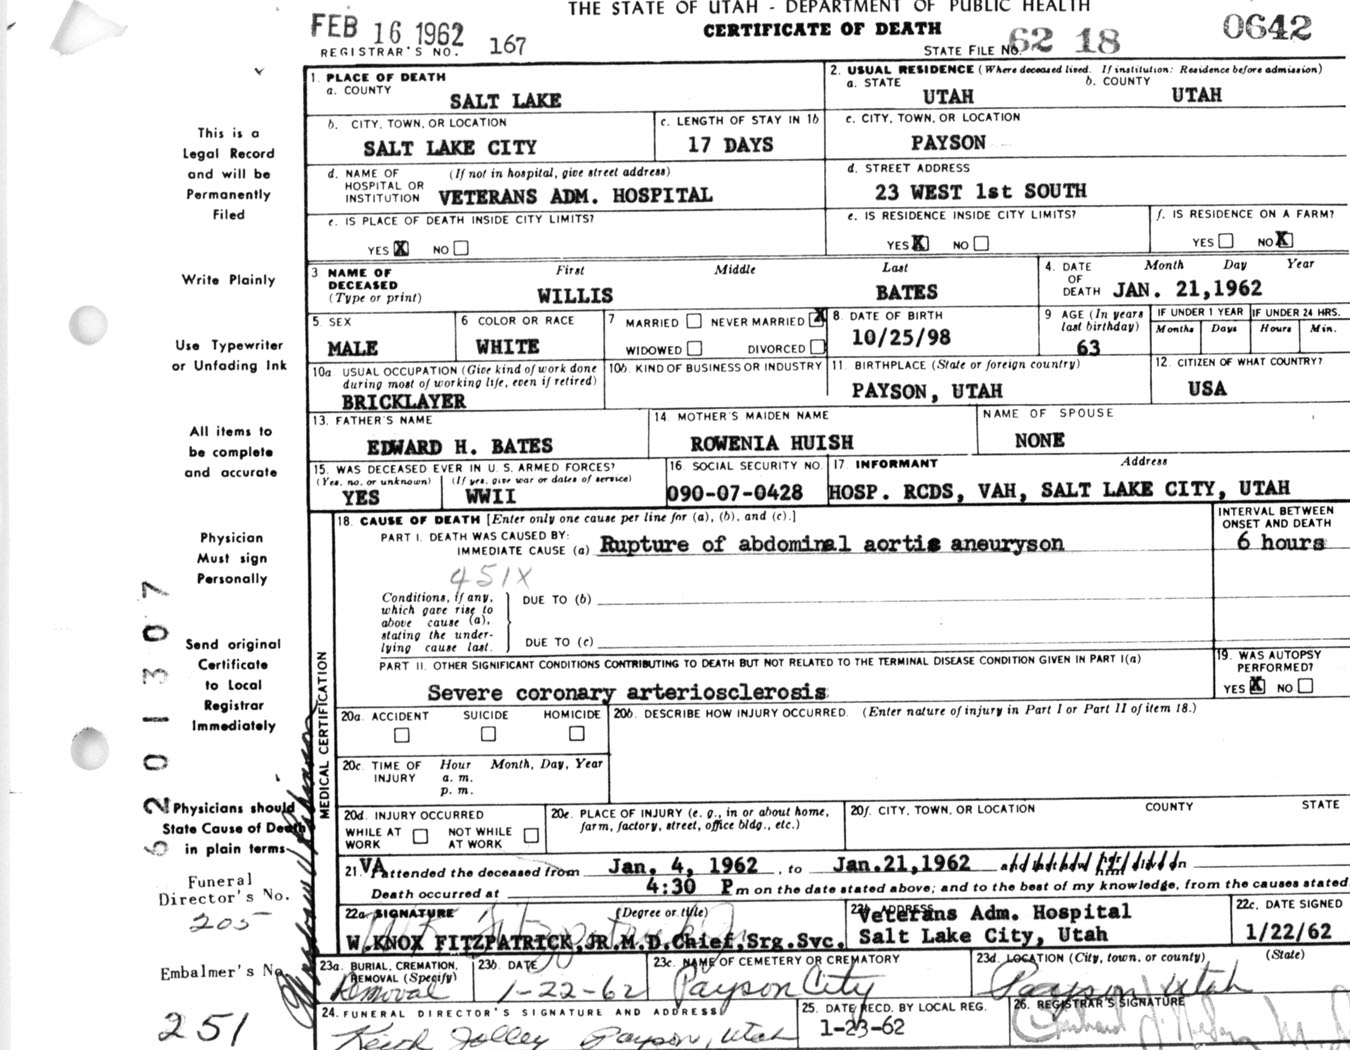 THE STATE OF UTAH - DEPARTMENT OF PUBLIC HEALTH
FEB 16 1962 CERTIFICATE OF DEATH 0642
REGISTRAR'S NO. 167 STATE FILE NO. 62 18
1. PLACE OF DEATH 2. USUAL RESIDENCE (Where deceased lived. If institution: Residence before admission)
a. COUNTY SALT LAKE a. STATE UTAH b. COUNTY UTAH
b. CITY, TOWN, OR LOCATION SALT LAKE CITY c. LENGTH OF STAY IN 1b 17 DAYS c. CITY, TOWN, OR LOCATION PAYSON
d. NAME OF HOSPITAL OR INSTITUTION (If not in hospital, give street address) VETERANS ADM. HOSPITAL d. STREET ADDRESS 23 WEST 1st SOUTH
e. IS PLACE OF DEATH INSIDE CITY LIMITS? e. IS RESIDENCE INSIDE CITY LIMITS? f. IS RESIDENCE ON A FARM?
YES X NO YES X NO YES NO X
3 NAME OF DECEASED (Type or print) First WILLIS Middle Last BATES 4. DATE OF DEATH Month Day Year JAN. 21,1962
5. SEX MALE 6 COLOR OR RACE WHITE 7 MARRIED NEVER MARRIED X WIDOWED DIVORCED 8. DATE OF BIRTH 10/25/98 9 AGE (In years last birthday) 63 IF UNDER 1 YEAR Months Days IF UNDER 24 HRS. Hours Min.
10a USUAL OCCUPATION (Give kind of work done during most of working life, even if retired) BRICKLAYER 10b. KIND OF BUSINESS OR INDUSTRY 11. BIRTHPLACE (State or foreign country) PAYSON, UTAH 12. CITIZEN OF WHAT COUNTRY? USA
13. FATHER'S NAME EDWARD H. BATES 14. MOTHER'S MAIDEN NAME ROWENIA HUISH NAME OF SPOUSE NONE
15. WAS DECEASED EVER IN U. S. ARMED FORCES? (Yes, no, or unknown) YES (If yes, give war or dates of service) WWII 16. SOCIAL SECURITY NO. 090-07-0428 17. INFORMANT Address HOSP. RCDS, VAH, SALT LAKE CITY, UTAH
18. CAUSE OF DEATH [Enter only one cause per line for (a), (b), and (c).] INTERVAL BETWEEN ONSET AND DEATH
PART I. DEATH WAS CAUSED BY:
IMMEDIATE CAUSE (a) Rupture of abdominal aortis aneuryson 6 hours
451X
Conditions, if any, which gave rise to above cause (a), stating the underlying cause last.
DUE TO (b)
DUE TO (c)
PART II. OTHER SIGNIFICANT CONDITIONS CONTRIBUTING TO DEATH BUT NOT RELATED TO THE TERMINAL DISEASE CONDITION GIVEN IN PART I(a) 19. WAS AUTOPSY PERFORMED?
Severe coronary arteriosclerosis YES X NO
20a. ACCIDENT SUICIDE HOMICIDE 20b. DESCRIBE HOW INJURY OCCURRED. (Enter nature of injury in Part I or Part II of item 18.)
20c TIME OF INJURY Hour a. m. p. m. Month, Day, Year
20d. INJURY OCCURRED WHILE AT WORK NOT WHILE AT WORK 20e. PLACE OF INJURY (e. g., in or about home, farm, factory, street, office bldg., etc.) 20f. CITY, TOWN, OR LOCATION COUNTY STATE
21. VA attended the deceased from Jan. 4, 1962, to Jan.21,1962
Death occurred at 4:30 P m on the date stated above; and to the best of my knowledge, from the causes stated
22a SIGNATURE (Degree or title) W.KNOX FITZPATRICK,JR.M.D.Chief,Srg.Svc. 22b. ADDRESS Veterans Adm. Hospital Salt Lake City, Utah 22c. DATE SIGNED 1/22/62
23a. BURIAL, CREMATION, REMOVAL (Specify) Removal 23b DATE 1-22-62 23c. NAME OF CEMETERY OR CREMATORY Payson City 23d. LOCATION (City, town, or county) (State) Payson, Utah
24. FUNERAL DIRECTOR'S SIGNATURE AND ADDRESS Payson, Utah 25. DATE RECD. BY LOCAL REG. 1-23-62 26. REGISTRAR'S SIGNATURE
MEDICAL CERTIFICATION
This is a
Legal Record
and will be
Permanently
Filed
Write Plainly
Use Typewriter
or Unfading Ink
All items to
be complete
and accurate
Physician
Must sign
Personally
Send original
Certificate
to Local
Registrar
Immediately
Physicians should
State Cause of Death
in plain terms
Funeral
Director's No.
205
Embalmer's No.
251
6201307